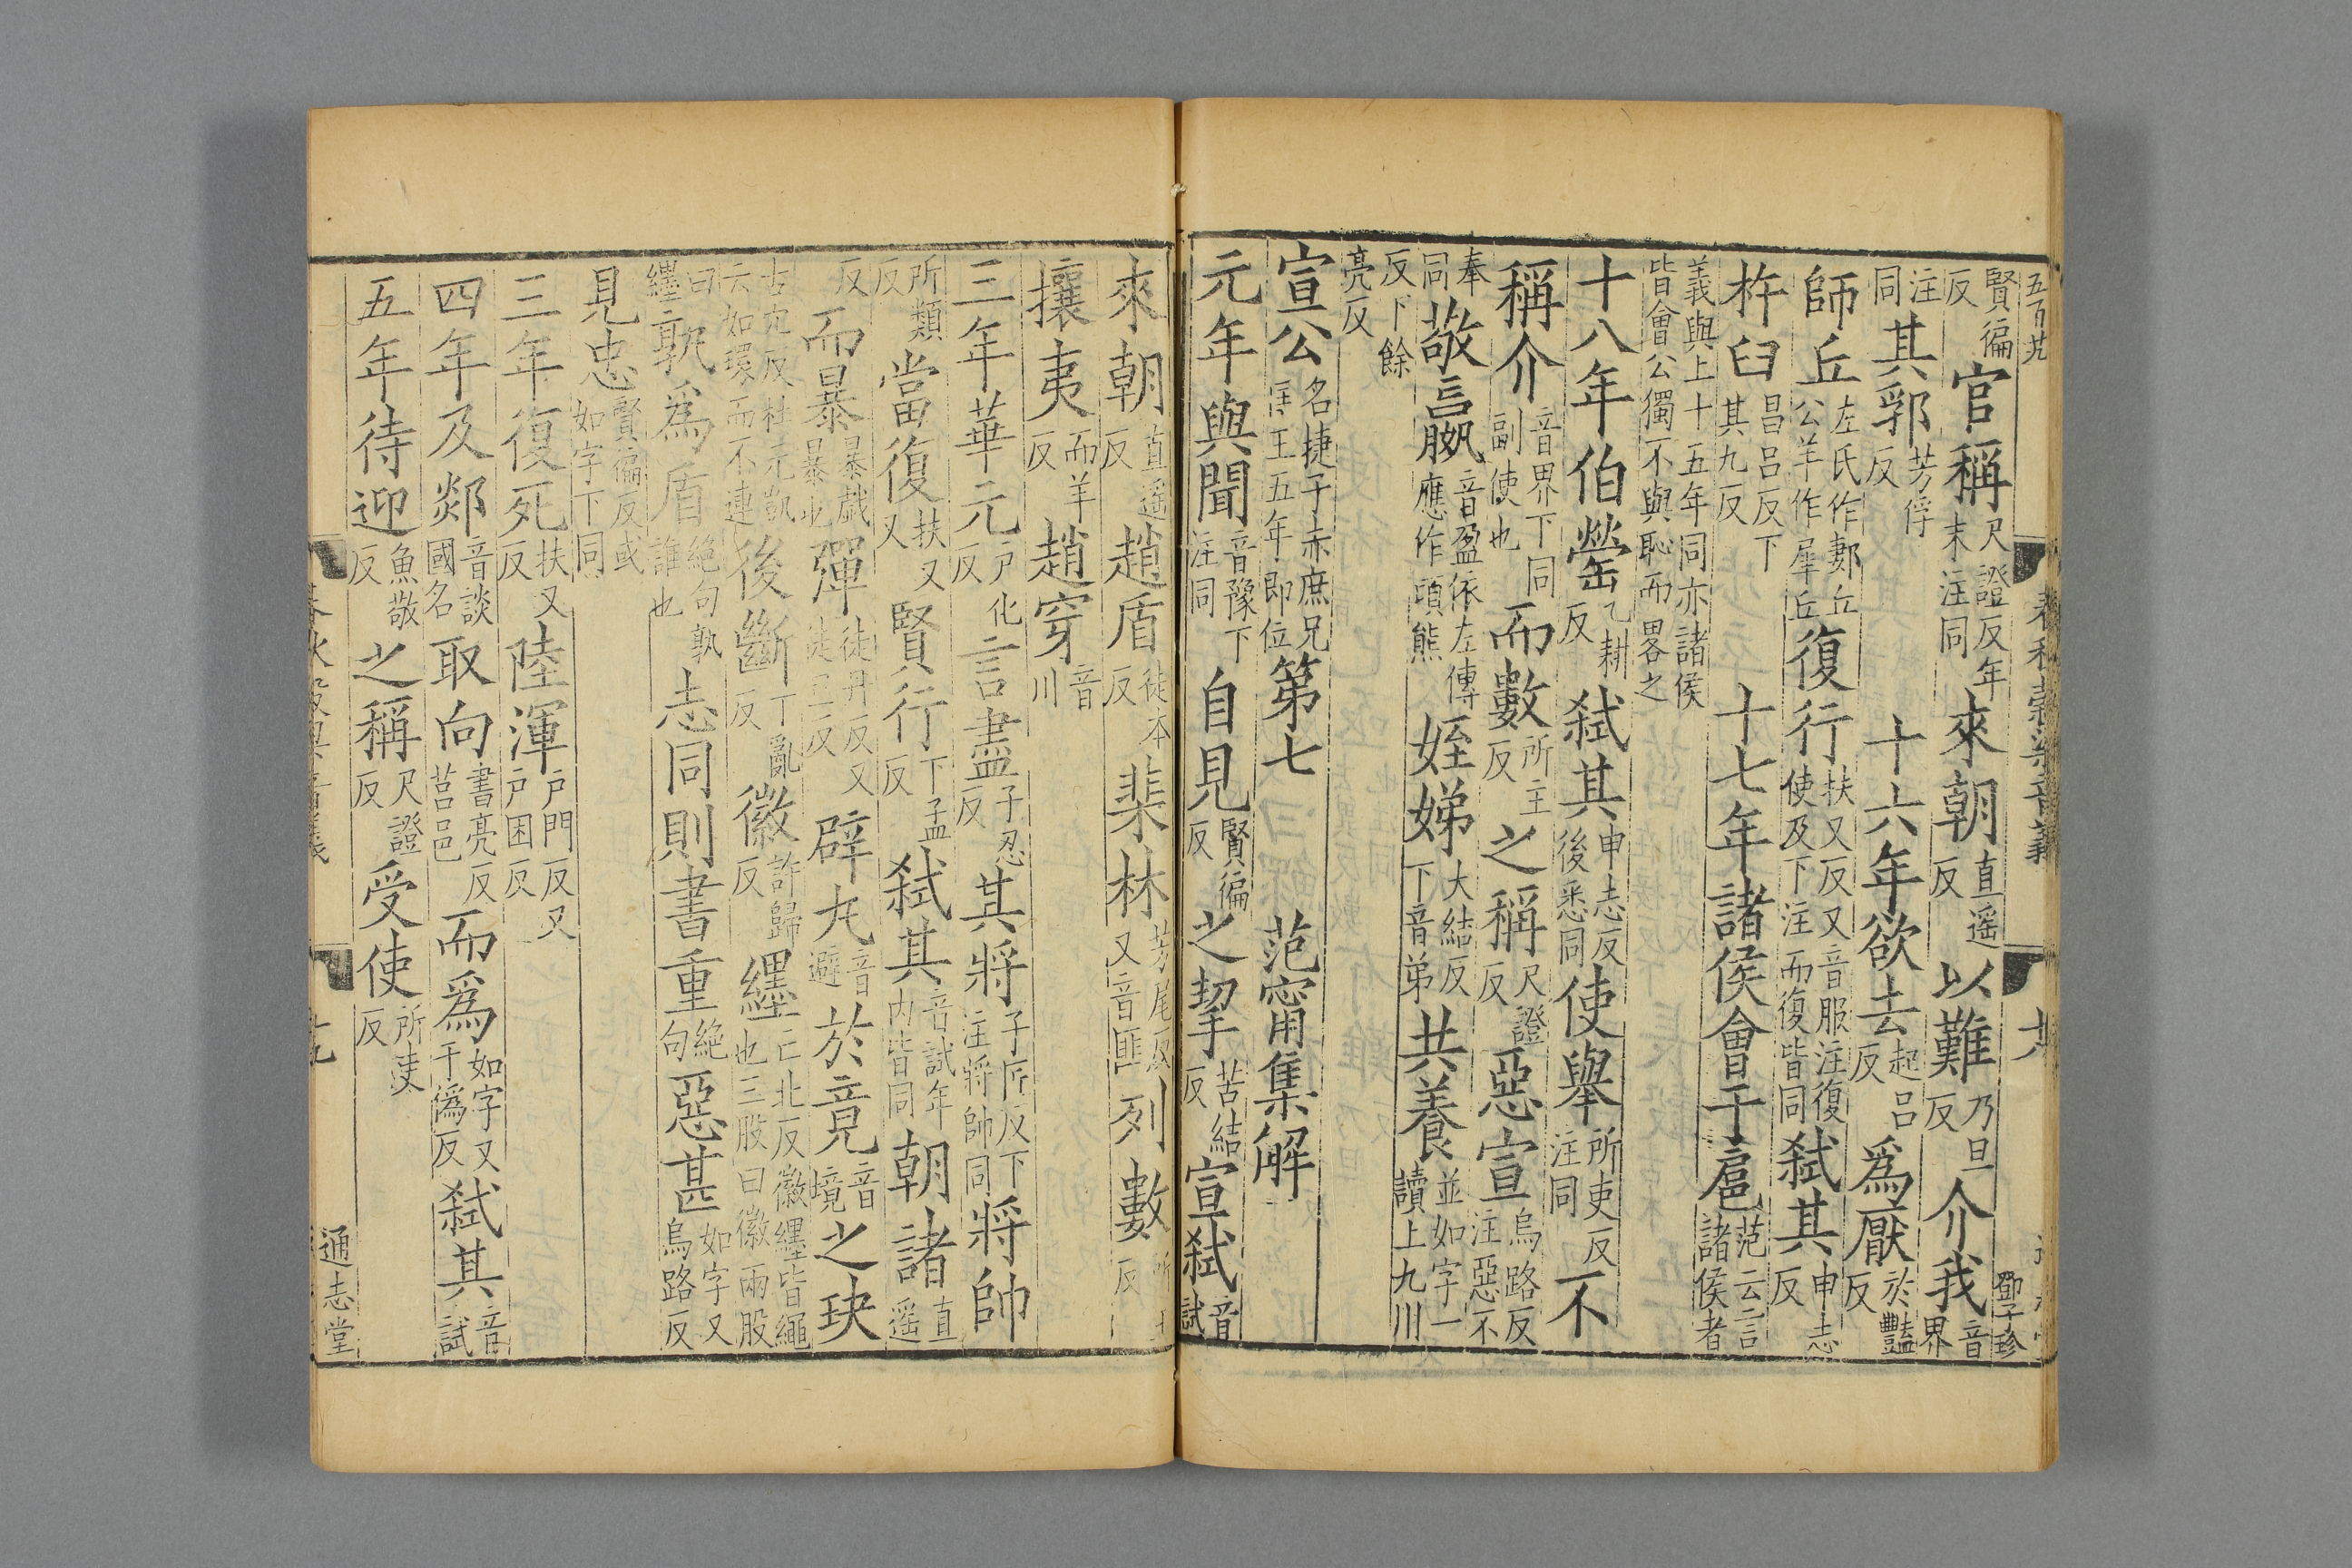 五百廿 春秋穀梁音義 鄧子珍
賢徧反 官稱尺證反年末注同 來朝直遥反 以難乃旦反 介我音界
注同 其郛芳俘反 十六年欲去起呂反 爲厭於豔反
師丘左氏作郪丘公羊作犀丘 復行扶又反又音服注復使及下注而復皆同 弑其申志反
杵臼昌呂反下其九反 十七年諸侯會于扈范云言諸侯者
義與上十五年同亦諸侯皆會公獨不與恥而畧之
十八年伯罃乙耕反 弑其申志反後悉同 使舉所吏反注同 不
稱介音界下同副使也 而數所主反 之稱尺證反 惡宣烏路反注惡不
奉同 敬嬴音盈依左傳應作頃熊 姪娣大結反下音弟 共養並如字一讀上九川
反下餘亮反
宣公名捷子赤庶兄匡王五年即位 第七 范甯集解
元年與聞音豫下注同 自見賢徧反 之挈苦結反 宣弑音試
來朝直遥反 趙盾徒本反 棐林芳尾反又音匪 列數所主反
攘夷而羊反 趙穿音川
二年華元户化反 言盡子忍反 其將子匠反下注將帥同 將帥
所類反 當復扶又反 賢行下孟反 弑其音試年内皆同 朝諸直遥
反 而暴暴戲暴也 彈徒丹反又徒旦反 辟丸音避 於竟音境 之玦
古穴反杜元凱云如環而不連 後斷丁亂反 徽許歸反 纆亡北反徽纆皆繩也三股曰徽兩股
曰纆 孰爲盾絶句孰誰也 志同則書重絶句 惡甚如字又烏路反
見忠賢徧反或如字下同
三年復死扶又反 陸渾户門反又户困反
四年及郯音談國名 取向書亮反莒邑 而爲如字又于僞反 弑其音試
五年待迎魚敬反 之稱尺證反 受使所吏反
春秋穀梁音義 通志堂